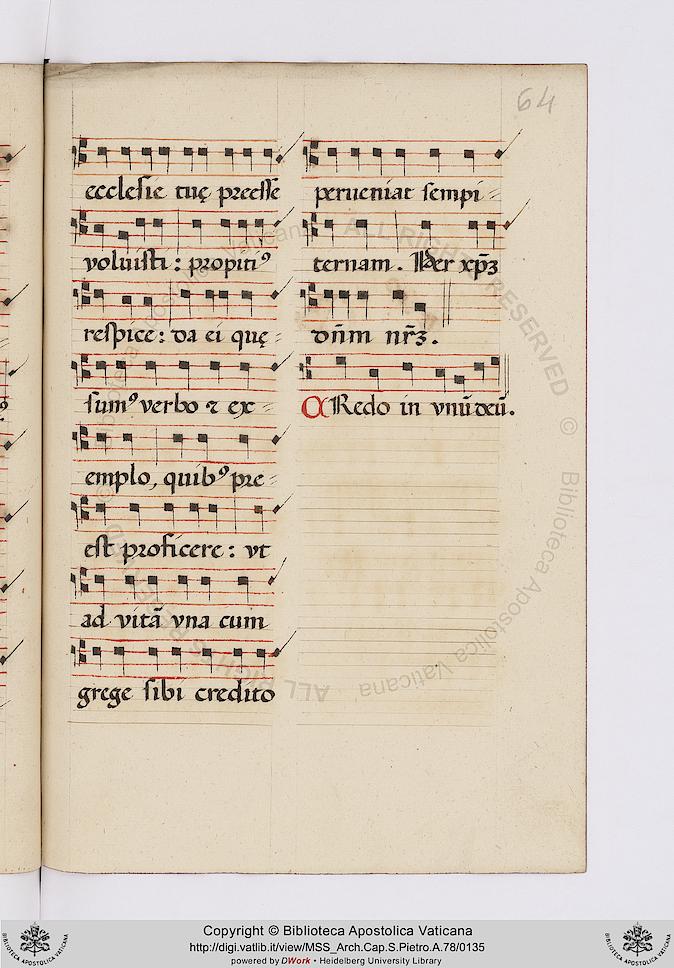 64
ecclesie tuę preesse
voluisti : propitiꝰ
respice : da ei quę=
sumꝰ verbo ⁊ ex=
emplo, quibꝰ pre=
est proficere : vt
ad vitā vna cum
grege sibi credito
perueniat sempi=
ternam . Per xp̄ꝫ
dn̄m nr̄ꝫ .
CRedo in vnū deū .
ALL RIGHTS RESERVED © Biblioteca Apostolica Vaticana
Copyright © Biblioteca Apostolica Vaticana
http://digi.vatlib.it/view/MSS_Arch.Cap.S.Pietro.A.78/0135
powered by DWork • Heidelberg University Library
BIBLIOTECA APOSTOLICA VATICANA
BIBLIOTECA APOSTOLICA VATICANA